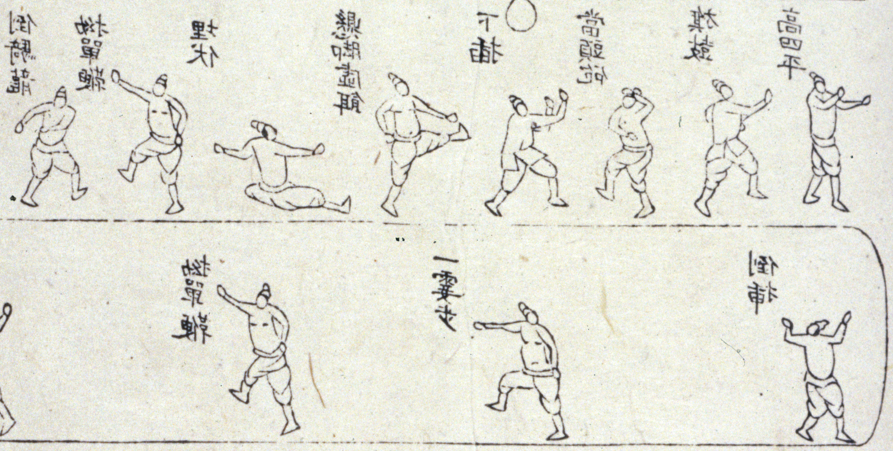 倒騎龍
拗單鞭
埋伏
懸脚虛餌
下插
當頭砲
旗鼓
高四平
倒插
一霎步
拗單鞭